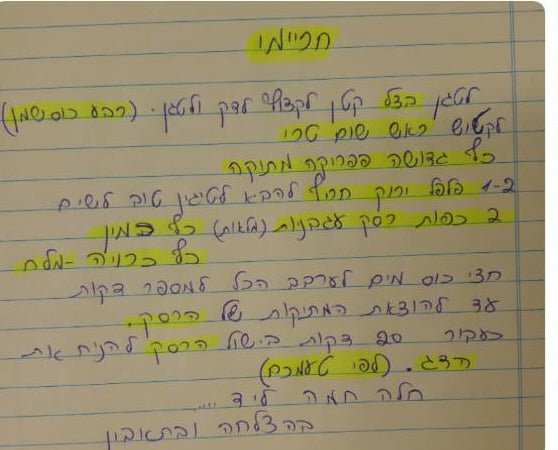 חריימי
לטגן בצל קטן לקצוץ לדק ולטגן. (רבע כוס שמן)
לקטוש ראש שום טרי
כף גדושה פפריקה מתוקה
1-2 פלפל ירוק חריף להבא לטיגון טוב לשים
2 כפות רסק עגבניות (מלאות) כף כמין
כף כרויה - מלח
חצי כוס מים לערבב הכל למספר דקות
עד להוצאת המתיקות של הרסק.
כעבור 20 דקות בישול הרסק להניח את
הדג. (לפי טעמכם)
חלה חמה ליד .....
בהצלחה ובתאבון